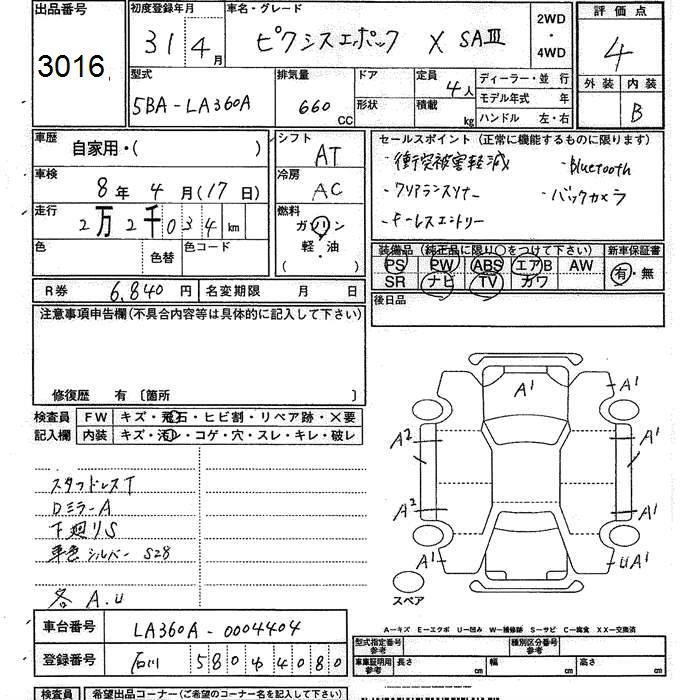 出品番号
3016
初度登録年月
31 4月
車名・グレード
ピクシスエポック X SAⅢ
2WD
・
4WD
評価点
4
外装 内装
B
型式
5BA-LA360A
排気量
660 CC
ドア
形状
定員 4人
積載 kg
ディーラー・並 行
モデル年式 年
ハンドル 左・右
車歴
自家用・( )
シフト
AT
セールスポイント (正常に機能するものに限ります)
・衝突被害軽減 ・Bluetooth
・クリアランスソナー ・バックカメラ
・キーレスエントリー
車検
8年 4月(17日)
冷房
AC
走行
2万2千034km
燃料
ガソリン
軽・油
( )
色
色替
色コード
装備品 (純正品に限り〇をつけて下さい) 新車保証書
PS PW ABS エアB AW
SR ナビ TV カワ
有・無
R券 6,840円 名変期限 月 日
後日品
注意事項申告欄(不具合内容等は具体的に記入して下さい)
修復歴 有 〔箇所 〕
検査員 FW キズ・飛石・ヒビ割・リペア跡・×要
記入欄 内装 キズ・汚レ・コゲ・穴・スレ・キレ・破レ
スタッドレスT
DミラーA
下廻りS
車色 シルバー S28
各 A.U
A1
A1
A2
A1
A2
A1
A1
UA1
スペア
車台番号 LA360A-0004404
登録番号 石川 580 ね 4080
A-キズ E-エクボ U-凹み W-補修跡 S-サビ C-腐食 XX-交換済
型式指定番号 参考
種別区分番号 参考
車庫証明用 参考 長さ cm 幅 cm 高さ cm
検査員 希望出品コーナー(ご希望のコーナー名を記入下さい)